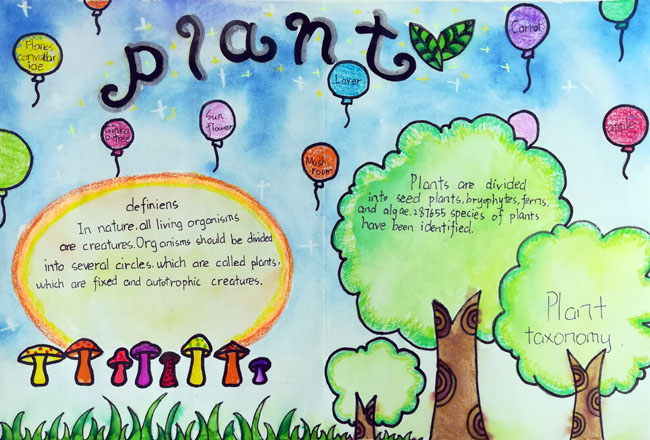 plant
Flores
convallar
iae
Carrot
Laver
Sun
flower
Mush
room
apple
definiens
In nature, all living organisms
are creatures. Organisms should be divided
into several circles, which are called plants,
which are fixed and autotrophic creatures.
Plants are divided
into seed plants, bryophytes, ferns,
and algae. 287655 species of plants
have been identified.
Plant
taxonomy